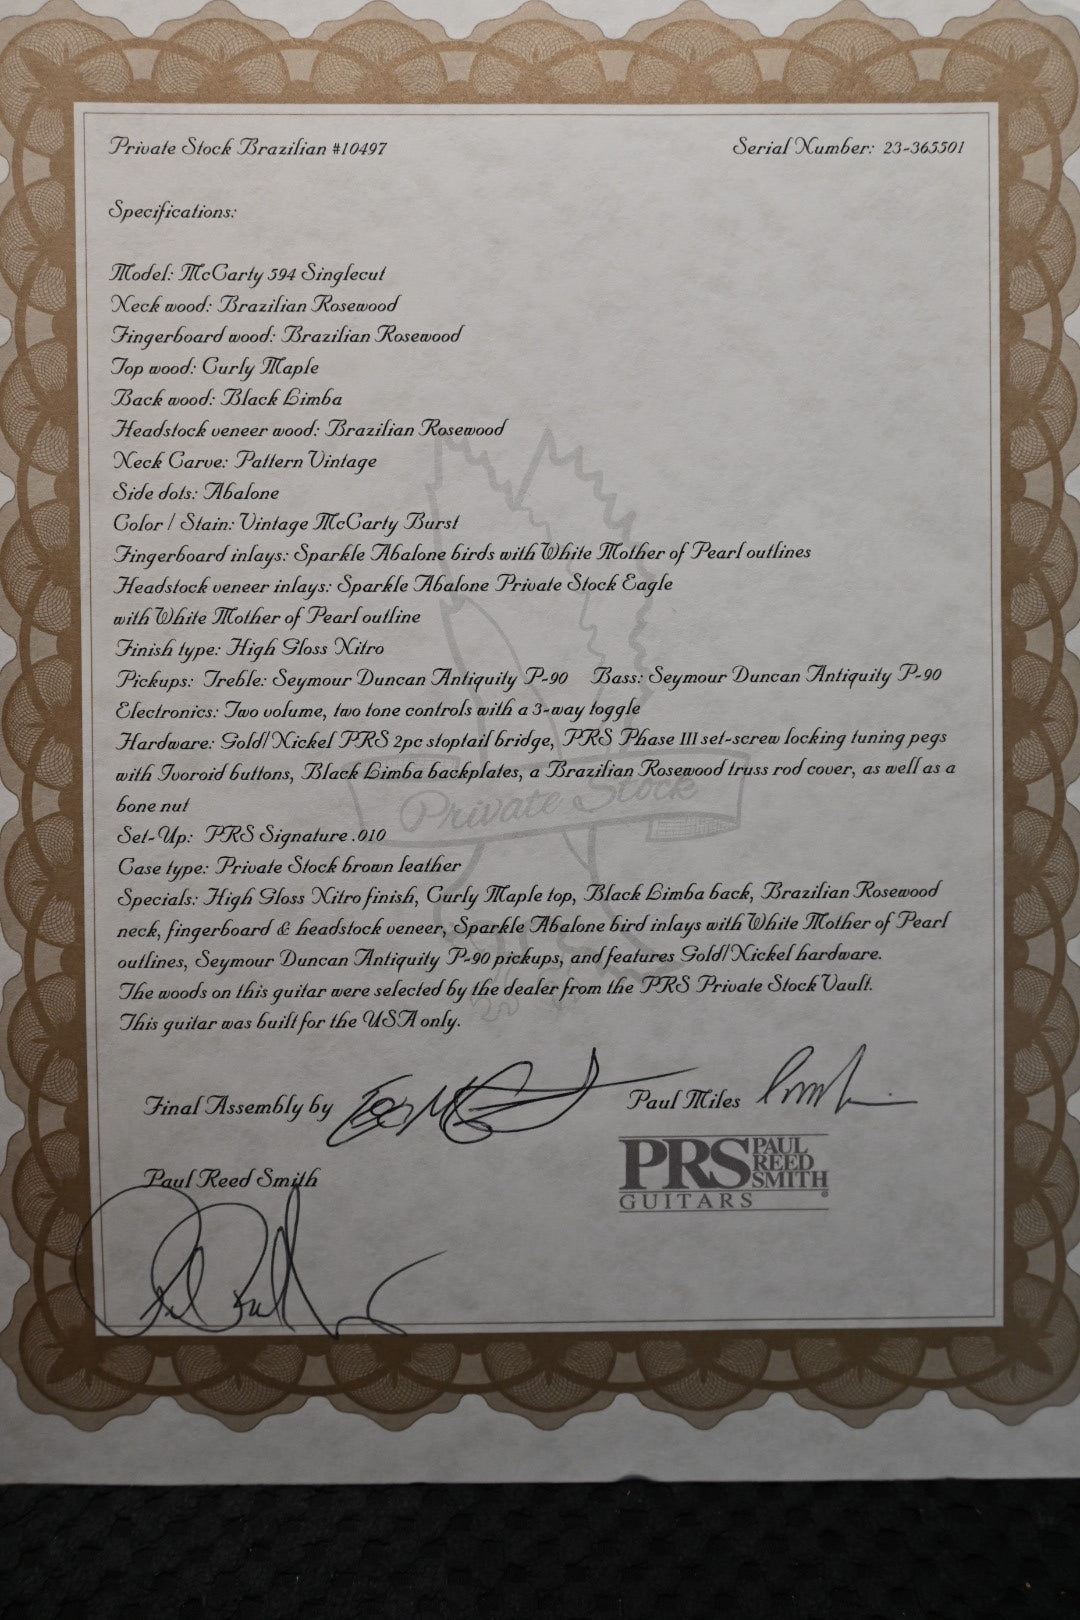 Private Stock Brazilian #10497
Serial Number: 23-365501
Specifications:
Model: McCarty 594 Singlecut
Neck wood: Brazilian Rosewood
Fingerboard wood: Brazilian Rosewood
Top wood: Curly Maple
Back wood: Black Limba
Headstock veneer wood: Brazilian Rosewood
Neck Carve: Pattern Vintage
Side dots: Abalone
Color / Stain: Vintage McCarty Burst
Fingerboard inlays: Sparkle Abalone birds with White Mother of Pearl outlines
Headstock veneer inlays: Sparkle Abalone Private Stock Eagle
with White Mother of Pearl outline
Finish type: High Gloss Nitro
Pickups: Treble: Seymour Duncan Antiquity P-90 Bass: Seymour Duncan Antiquity P-90
Electronics: Two volume, two tone controls with a 3-way toggle
Hardware: Gold/Nickel PRS 2pc stoptail bridge, PRS Phase III set-screw locking tuning pegs
with Ivoroid buttons, Black Limba backplates, a Brazilian Rosewood truss rod cover, as well as a
bone nut
Private Stock
Set-Up: PRS Signature .010
Case type: Private Stock brown leather
Specials: High Gloss Nitro finish, Curly Maple top, Black Limba back, Brazilian Rosewood
neck, fingerboard & headstock veneer, Sparkle Abalone bird inlays with White Mother of Pearl
outlines, Seymour Duncan Antiquity P-90 pickups, and features Gold/Nickel hardware.
The woods on this guitar were selected by the dealer from the PRS Private Stock Vault.
This guitar was built for the USA only.
Final Assembly by
Paul Miles
Paul Reed Smith
PRS PAUL REED SMITH
GUITARS